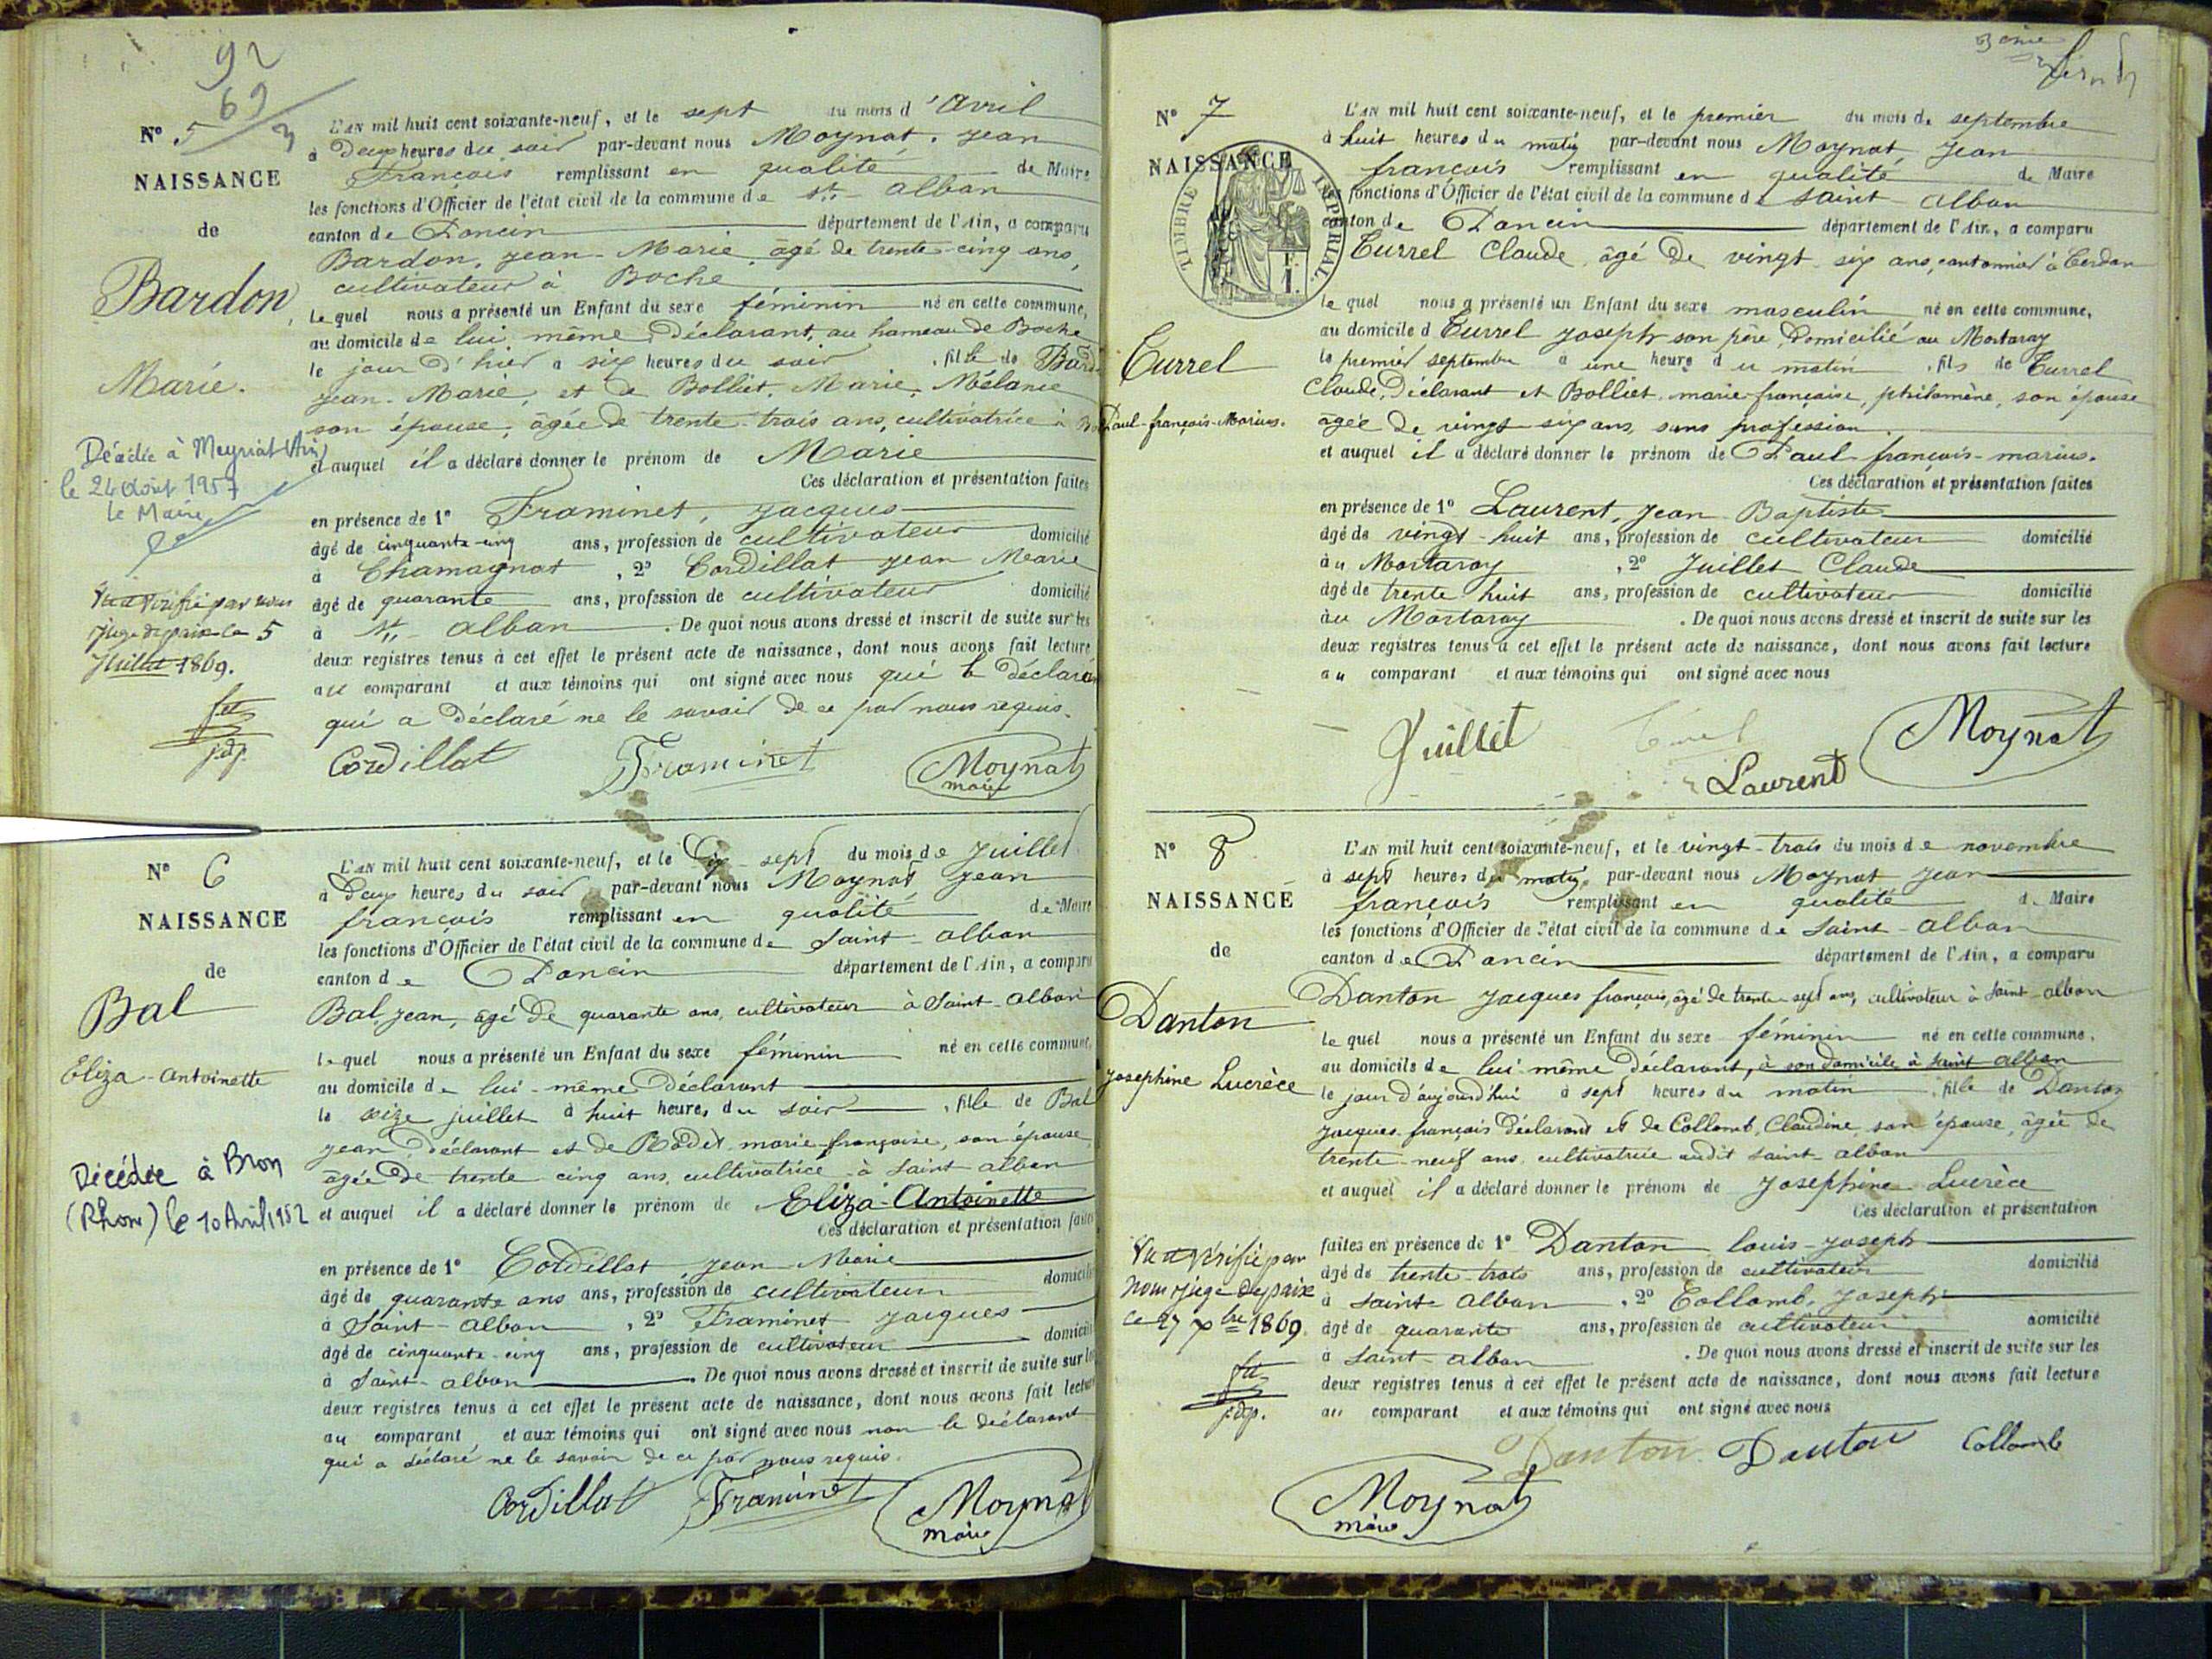 92
69
3
Nº 5
NAISSANCE
de
Bardon
Marie.
Décédée à Meyriat (Ain)
le 24 Août 1957
Le Maire
Vu et vérifié par nous
juge de paix le 5
Juillet 1869.
j.d.p.
L'AN mil huit cent soixante-neuf, et le sept du mois d'Avril
à Deux heures du soir par-devant nous Moynat, Jean
François remplissant en qualité de Maire
les fonctions d'Officier de l'état civil de la commune de St alban
canton de Poncin département de l'Ain, a comparu
Bardon, Jean-Marie, âgé de trente-cinq ans,
cultivateur à Boche
le quel nous a présenté un Enfant du sexe féminin né en cette commune,
au domicile de lui même Déclarant, au hameau de Boche
le jour d'hier à six heures du soir, fille de Bard
Jean-Marie, et de Bolliet, Marie, Mélanie
son épouse, âgée de trente-trois ans, cultivatrice à Bo
et auquel il a déclaré donner le prénom de Marie
Ces déclaration et présentation faites
en présence de 1º Framinet, Jacques
âgé de cinquante-cinq ans, profession de cultivateur domicilié
à Chamagnat, 2º Cordillat Jean Marie
âgé de quarante ans, profession de cultivateur domicilié
à St alban. De quoi nous avons dressé et inscrit de suite sur les
deux registres tenus à cet effet le présent acte de naissance, dont nous avons fait lecture
au comparant et aux témoins qui ont signé avec nous qué le déclaran
qui a déclaré ne le savoir de ce par nous requis.
Cordillat Framinet Moynat
maire
Nº 6
NAISSANCE
de
Bal
Eliza-Antoinette
Décédée à Bron
(Rhone) le 10 Avril 1952
L'AN mil huit cent soixante-neuf, et le Dix-sept du mois de Juillet
à Deux heures du soir par-devant nous Moynat Jean
françois remplissant en qualité de Maire
les fonctions d'Officier de l'état civil de la commune de Saint-alban
canton de Poncin département de l'Ain, a comparu
Bal, Jean, âgé de quarante ans, cultivateur à Saint-alban
le quel nous a présenté un Enfant du sexe féminin né en cette commune,
au domicile de lui-même Déclarant
le seize juillet à huit heures du soir, fille de Bal
Jean, déclarant et de Rodet, marie-françoise, son épouse,
âgée de trente cinq ans, cultivatrice à Saint-alban
et auquel il a déclaré donner le prénom de Eliza-Antoinette
Ces déclaration et présentation faites
en présence de 1º Cordillat, Jean-Marie
âgé de quarante ans ans, profession de cultivateur domicilié
à Saint-alban, 2º Framinet Jacques
âgé de cinquante-cinq ans, profession de cultivateur domicilié
à Saint-alban. De quoi nous avons dressé et inscrit de suite sur les
deux registres tenus à cet effet le présent acte de naissance, dont nous avons fait lecture
au comparant et aux témoins qui ont signé avec nous non le déclarant
qui a déclaré ne le savoir de ce par nous requis.
Cordillat Framinet Moynat
maire
3eme
Nº 7
NAISSANCE
TIMBRE IMPERIAL
Currel
Paul-françois-Marius.
L'AN mil huit cent soixante-neuf, et le premier du mois de septembre
à huit heures du matin par-devant nous Moynat Jean
françois remplissant en qualité de Maire
les fonctions d'Officier de l'état civil de la commune de Saint alban
canton de Poncin département de l'Ain, a comparu
Currel Claude, âgé de vingt-six ans, cantonnier à Cerdon
le quel nous a présenté un Enfant du sexe masculin né en cette commune,
au domicile d Currel Joseph son père, domicilié au Mortaray
le premier septembre à une heure du matin, fils de Currel
Claude, Déclarant et Bolliet marie-françoise, philomène, son épouse
âgée de vingt six ans, sans profession.
et auquel il a déclaré donner le prénom de Paul-françois-marius.
Ces déclaration et présentation faites
en présence de 1º Laurent, Jean Baptiste
âgé de vingt-huit ans, profession de cultivateur domicilié
au Mortaray, 2º Juillet Claude
âgé de trente huit ans, profession de cultivateur domicilié
au Mortaray. De quoi nous avons dressé et inscrit de suite sur les
deux registres tenus à cet effet le présent acte de naissance, dont nous avons fait lecture
au comparant et aux témoins qui ont signé avec nous
Juillet Laurent Moynat
Nº 8
NAISSANCE
de
Danton
Josephine Lucrèce
Vu et Vérifié par
nous juge de paix
ce 27 Xbre 1869.
j.d.p.
L'AN mil huit cent soixante-neuf, et le vingt-trois du mois de novembre
à sept heures du matin par-devant nous Moynat Jean
françois remplissant en qualité de Maire
les fonctions d'Officier de l'état civil de la commune de Saint-alban
canton de Poncin département de l'Ain, a comparu
Danton Jacques françois, âgé de trente-sept ans, cultivateur à Saint-alban
le quel nous a présenté un Enfant du sexe féminin né en cette commune,
au domicile de lui même Déclarant, à son domicile à Saint alban
le jour d'aujourd'hui à sept heures du matin, fille de Danton
Jacques-françois Déclarant et de Collomb, Claudine, son épouse, âgée de
trente-neuf ans, cultivatrice audit Saint-alban
et auquel il a déclaré donner le prénom de Josephine Lucrèce
Ces déclaration et présentation
faites en présence de 1º Danton louis-Joseph
âgé de trente-trois ans, profession de cultivateur domicilié
à Saint-alban, 2º Collomb, Joseph
âgé de quarante ans, profession de cultivateur domicilié
à Saint-alban. De quoi nous avons dressé et inscrit de suite sur les
deux registres tenus à cet effet le présent acte de naissance, dont nous avons fait lecture
au comparant et aux témoins qui ont signé avec nous
Danton Danton Collomb
Moynat
maire